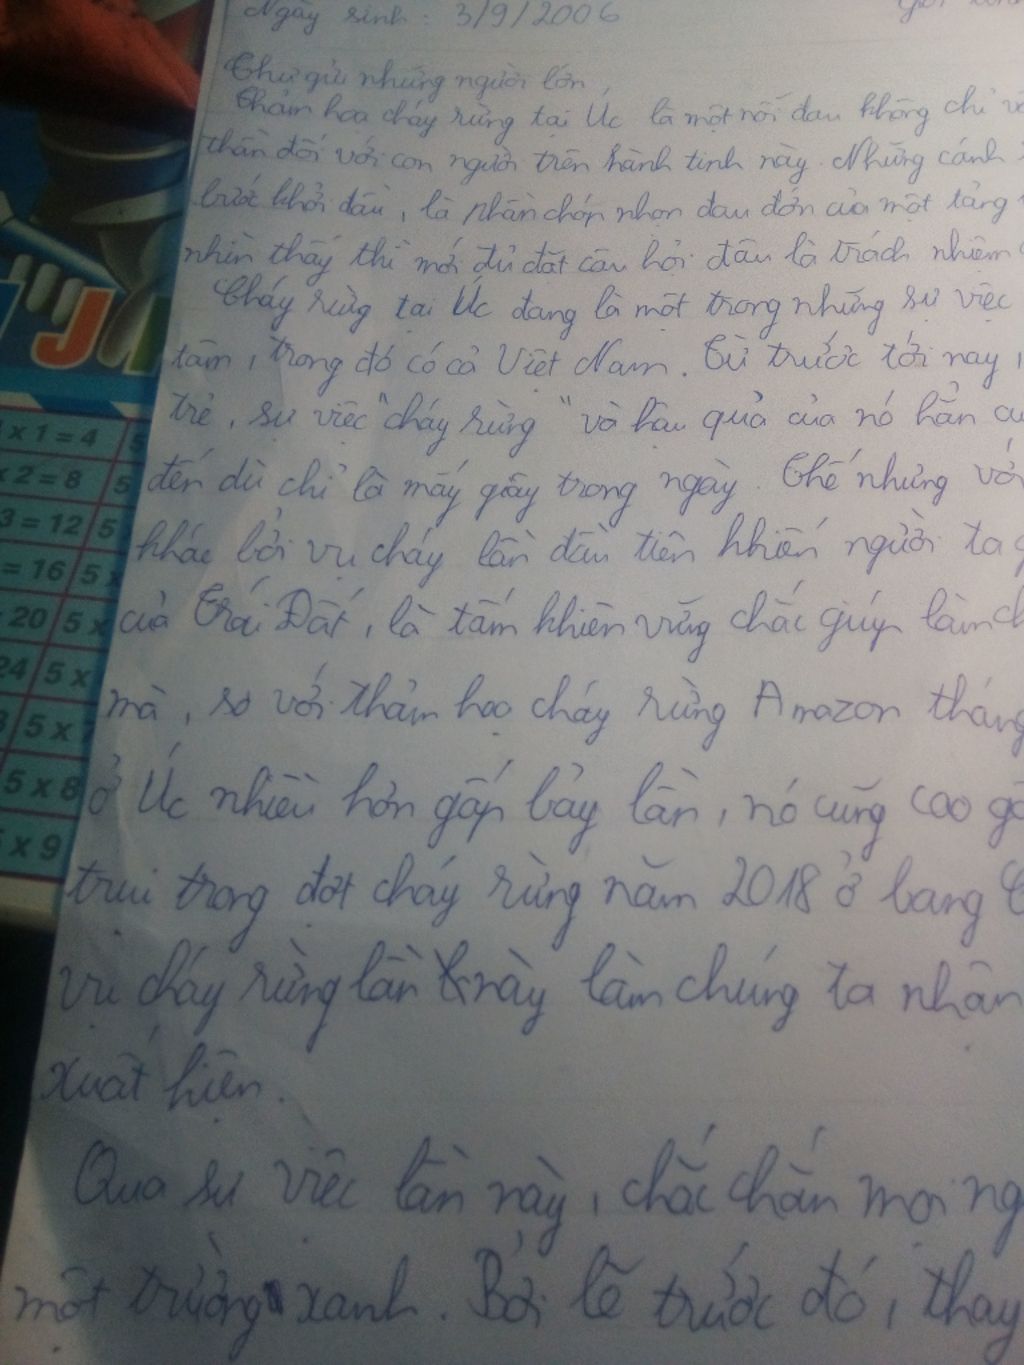 Ngày sinh : 3/9/2006
Thư gửi những người lớn,
Thảm họa cháy rừng tại Úc là một nỗi đau không chỉ về
thần đối với con người trên hành tinh này. Những cánh
bước khởi đầu, là phần chóp nhọn đau đớn của một tảng
nhìn thấy thì mới đủ đặt câu hỏi đâu là trách nhiệm
Cháy rừng tại Úc đang là một trong những sự việc
tâm, trong đó có cả Việt Nam. Từ trước tới nay,
trẻ, sự việc "cháy rừng" và hậu quả của nó hẳn
đến dù chỉ là mấy giây trong ngày. Thế nhưng với
khác bởi vụ cháy lần đầu tiên khiến người ta
của Trái Đất, là tấm khiên vững chắc giúp làm
mà, so với thảm họa cháy rừng Amazon tháng
ở Úc nhiều hơn gấp bảy lần, nó cũng cao
trụi trong đợt cháy rừng năm 2018 ở bang
vụ cháy rừng lần này làm chúng ta nhận
xuất hiện.
Qua sự việc lần này, chắc chắn mọi
một trường xanh. Bởi lẽ trước đó, thay
J
x 1 = 4
5
x 2 = 8
5
3 = 12
5
= 16
5 x
20
5 x
24
5 x
5 x
5 x 8
x 9